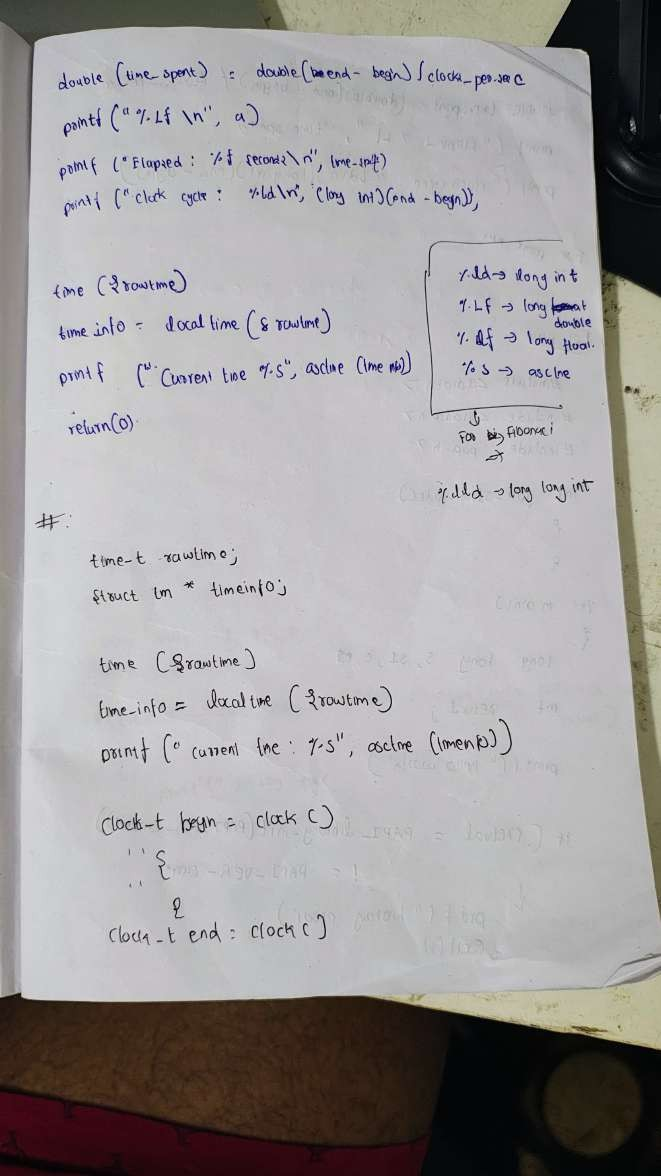 double (time_spent) = double(end - begin) / clocks_per_sec
printf ("%Lf \n", a)
printf ("Elapsed : %f seconds \n", time-spent)
printf ("clock cycle : %ld\n", (long int)(end - begin));
time (&rawtime)
time info = local time (& rawtime)
printf (". Current time %s", asctime (time info))
return(0)
%ld → long int
%Lf → long double
%lf → long float.
%s → asctime
For big Fibonacci
%lld → long long int
#:
time-t rawtime;
struct tm * timeinfo;
time (&rawtime)
time-info = localtime (&rawtime)
printf (" current time : %s", asctime (timeinfo))
clock-t begin = clock ()
{
}
clock-t end = clock ()